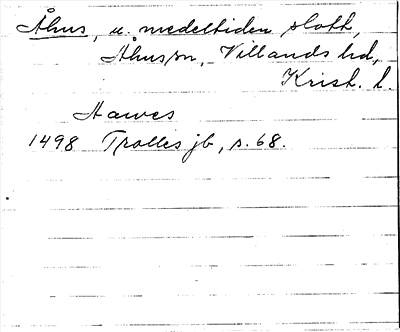 Åhus, u. medeltiden slott,
Åhus sn, Villands hd,
Krist. l.
Hawes
1498 Trolles jb, s. 68.